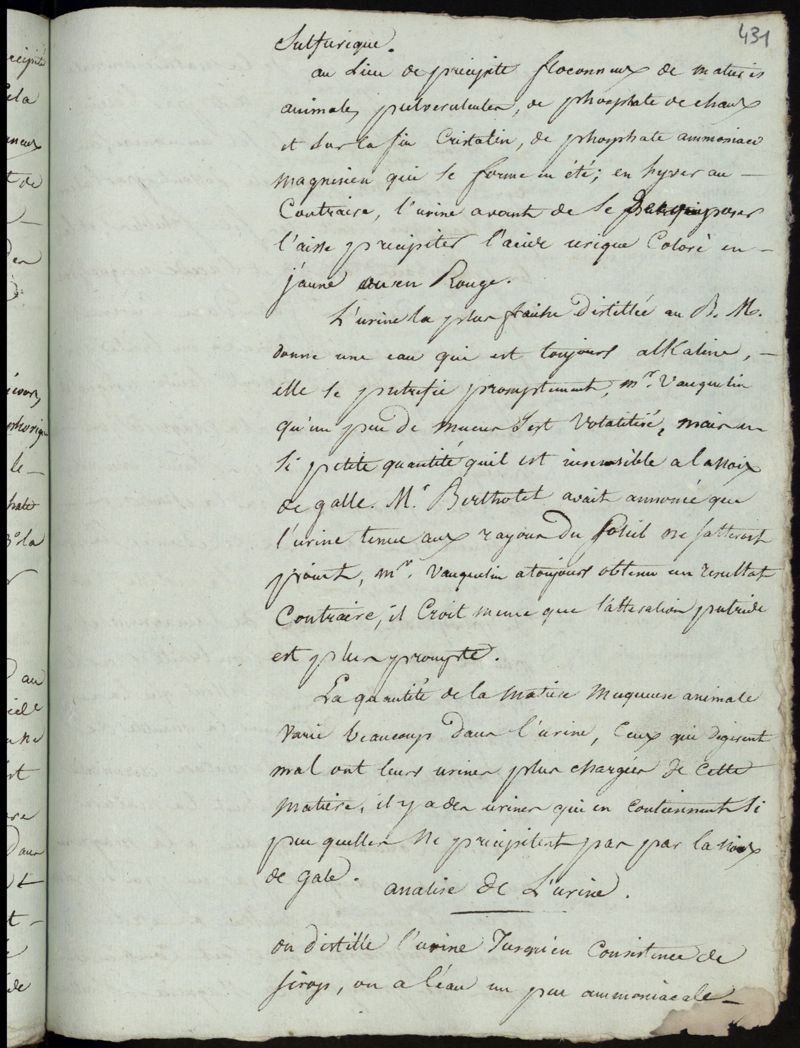 431
Sulfurique.
au Lieu de precipité floconneux de matieres
animales pulverulentes, de phosphate de chaux
et sur la fin Cristalin, de phosphate ammoniaco
magnesien qui se forme en été; en hyver au —
Contraire, l'urine avant de se
l'aisse precipiter l'acide urique Coloré en —
jaune ou en Rouge.
L'urine la plus fraiche distillée au B. M.
donne une eau qui est toujours alkaline, —
elle se putrefie promptement, mr. Vauquelin
qu'un peu de mucus s'est Volatilisé, mais en
si petite quantité quil est insensible a la noix
de galle. Mr Bertholet avait annoncé que
l'urine tenue aux rayons du soleil ne satteroit
point, mr. Vauquelin a toujours obtenu un resultat
Contraire, il Croit meme que l'atteration putride
est plus prompte.
La quantité de la matiere Muqueuse animale
Varie beaucoup dans l'urine, Ceux qui digerent
mal ont leurs urines plus chargées de Cette
matiere, il y a des urines qui en contiennent si
peu quelles ne precipitent pas par la noix
de gale.
analise de L'urine.
on distille l'urine Jusqu'en Consistence de
sirop, on a l'eau un peu ammoniacale —